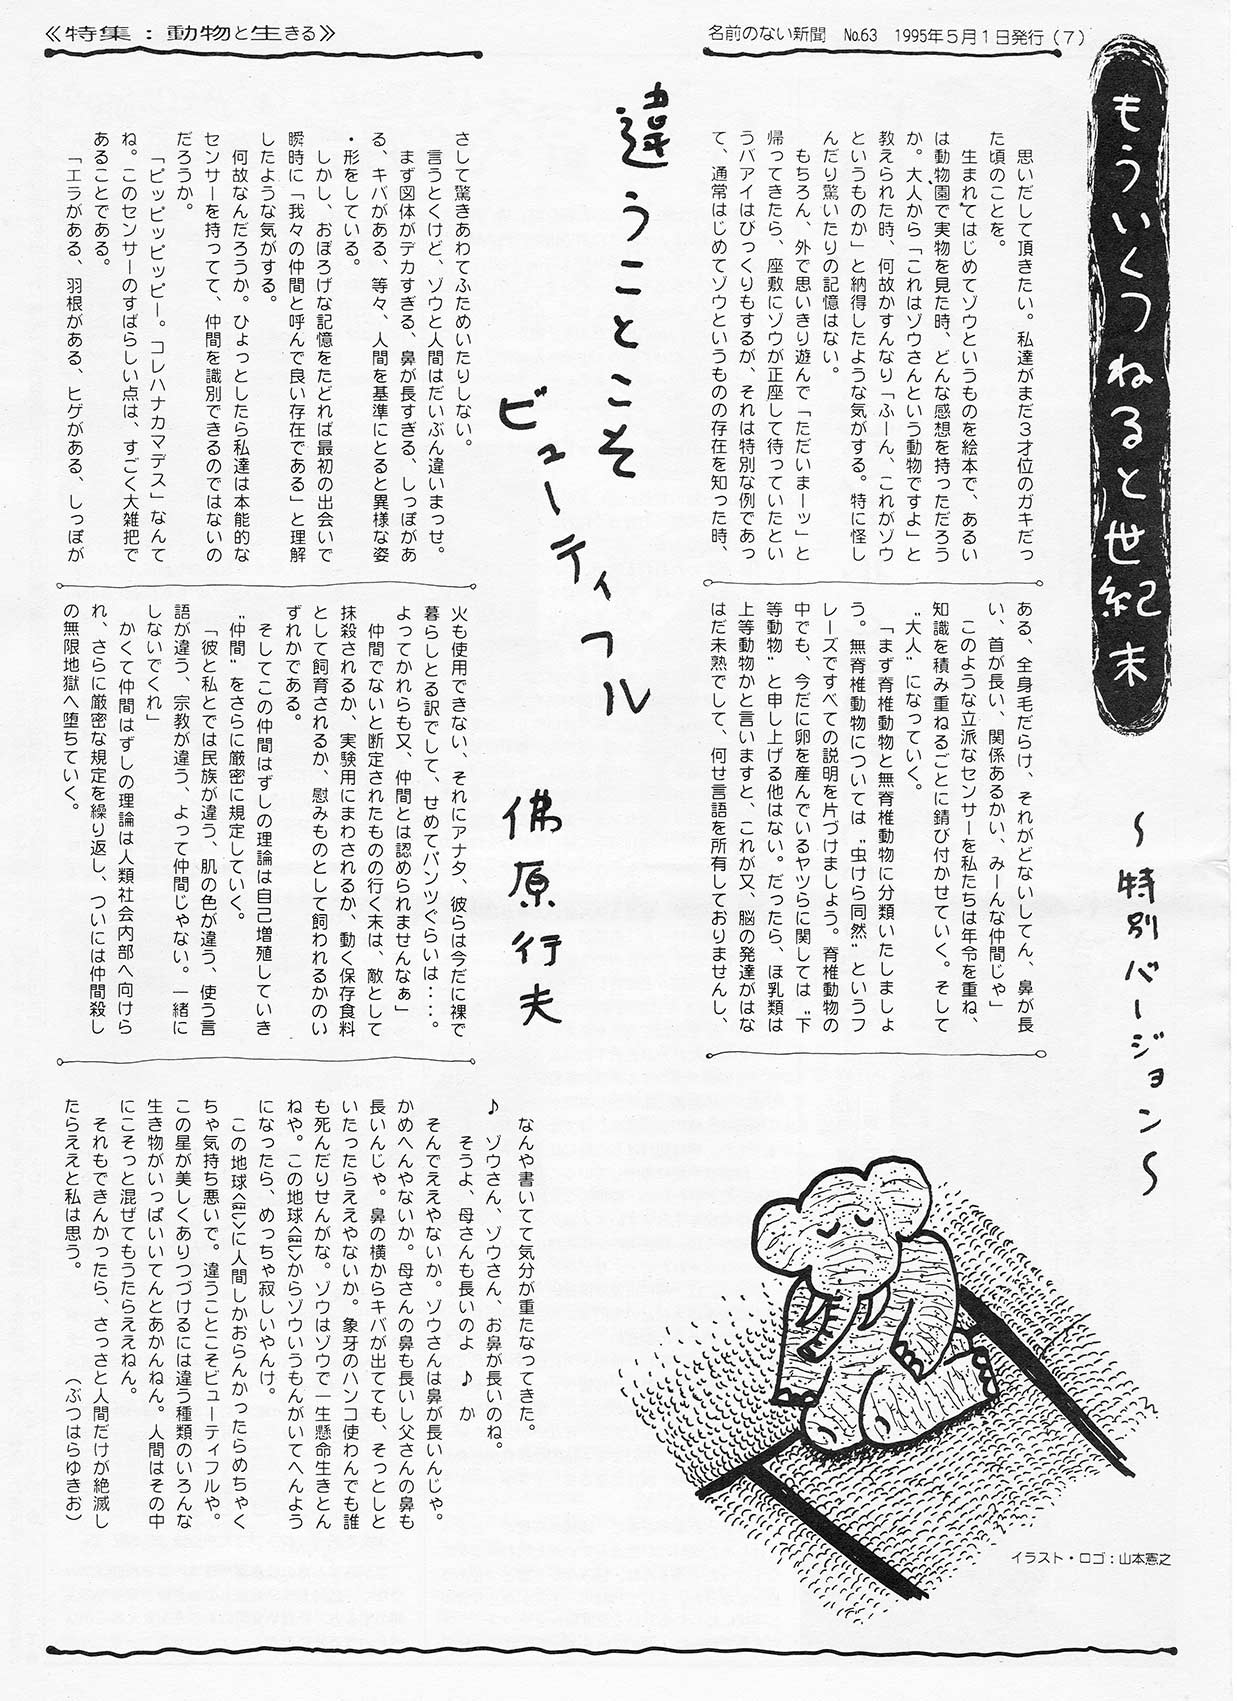 ≪特集：動物と生きる≫
名前のない新聞　No.63　1995年５月１日発行（７）
もういくつねると世紀末
〜特別バージョン〜
違うことこそ
ビューティフル
佛原行夫
思いだして頂きたい。私達がまだ３才位のガキだっ
た頃のことを。
生まれてはじめてゾウというものを絵本で、あるい
は動物園で実物を見た時、どんな感想を持っただろう
か。大人から「これはゾウさんという動物ですよ」と
教えられた時、何故かすんなり「ふーん、これがゾウ
というものか」と納得したような気がする。特に怪し
んだり驚いたりの記憶はない。
もちろん、外で思いきり遊んで「ただいまーッ」と
帰ってきたら、座敷にゾウが正座して待っていたとい
うバアイはびっくりもするが、それは特別な例であっ
て、通常はじめてゾウというものの存在を知った時、
さして驚きあわてふためいたりしない。
言うとくけど、ゾウと人間はだいぶん違いまっせ。
まず図体がデカすぎる、鼻が長すぎる、しっぽがあ
る、キバがある、等々、人間を基準にとると異様な姿
・形をしている。
しかし、おぼろげな記憶をたどれば最初の出会いで
瞬時に「我々の仲間と呼んで良い存在である」と理解
したような気がする。
何故なんだろうか。ひょっとしたら私達は本能的な
センサーを持ってて、仲間を識別できるのではないの
だろうか。
「ピッピッピッピー。コレハナカマデス」なんて
ね。このセンサーのすばらしい点は、すごく大雑把で
あることである。
「エラがある、羽根がある、ヒゲがある、しっぽが
ある、全身毛だらけ、それがどないしてん、鼻が長
い、首が長い、関係あるかい、みーんな仲間じゃ」
このような立派なセンサーを私たちは年令を重ね、
知識を積み重ねるごとに錆び付かせていく。そして
〝大人〟になっていく。
「まず脊椎動物と無脊椎動物に分類いたしましょ
う。無脊椎動物については〝虫けら同然〟というフ
レーズですべての説明を片づけましょう。脊椎動物の
中でも、今だに卵を産んでいるヤツらに関しては〝下
等動物〟と申し上げる他はない。だったら、ほ乳類は
上等動物かと言いますと、これが又、脳の発達がはな
はだ未熟でして、何せ言語を所有しておりませんし、
火も使用できない、それにアナタ、彼らは今だに裸で
暮らしとる訳でして、せめてパンツぐらいは・・・。
よってかれらも又、仲間とは認められませんなぁ」
仲間でないと断定されたものの行く末は、敵として
抹殺されるか、実験用にまわされるか、動く保存食料
として飼育されるか、慰みものとして飼われるかのい
ずれかである。
そしてこの仲間はずしの理論は自己増殖していき
〝仲間〟をさらに厳密に規定していく。
「彼と私とでは民族が違う、肌の色が違う、使う言
語が違う、宗教が違う、よって仲間じゃない。一緒に
しないでくれ」
かくて仲間はずしの理論は人類社会内部へ向けら
れ、さらに厳密な規定を繰り返し、ついには仲間殺し
の無限地獄へ堕ちていく。
なんや書いてて気分が重たなってきた。
♪　ゾウさん、ゾウさん、お鼻が長いのね。
そうよ、母さんも長いのよ　♪　か
そんでええやないか。ゾウさんは鼻が長いんじゃ。
かめへんやないか。母さんの鼻も長いし父さんの鼻も
長いんじゃ。鼻の横からキバが出てても、そっとしと
いたったらええやないか。象牙のハンコ使わんでも誰
も死んだりせんがな。ゾウはゾウで一生懸命生きとん
ねや。この地球〈星〉からゾウいうもんがいてへんよう
になったら、めっちゃ寂しいやんけ。
この地球〈星〉に人間しかおらんかったらめちゃく
ちゃ気持ち悪いで。違うことこそビューティフルや。
この星が美しくありつづけるには違う種類のいろんな
生き物がいっぱいいてんとあかんねん。人間はその中
にこそっと混ぜてもうたらええねん。
それもできんかったら、さっさと人間だけが絶滅し
たらええと私は思う。　（ぶつはらゆきお）
イラスト・ロゴ：山本憲之